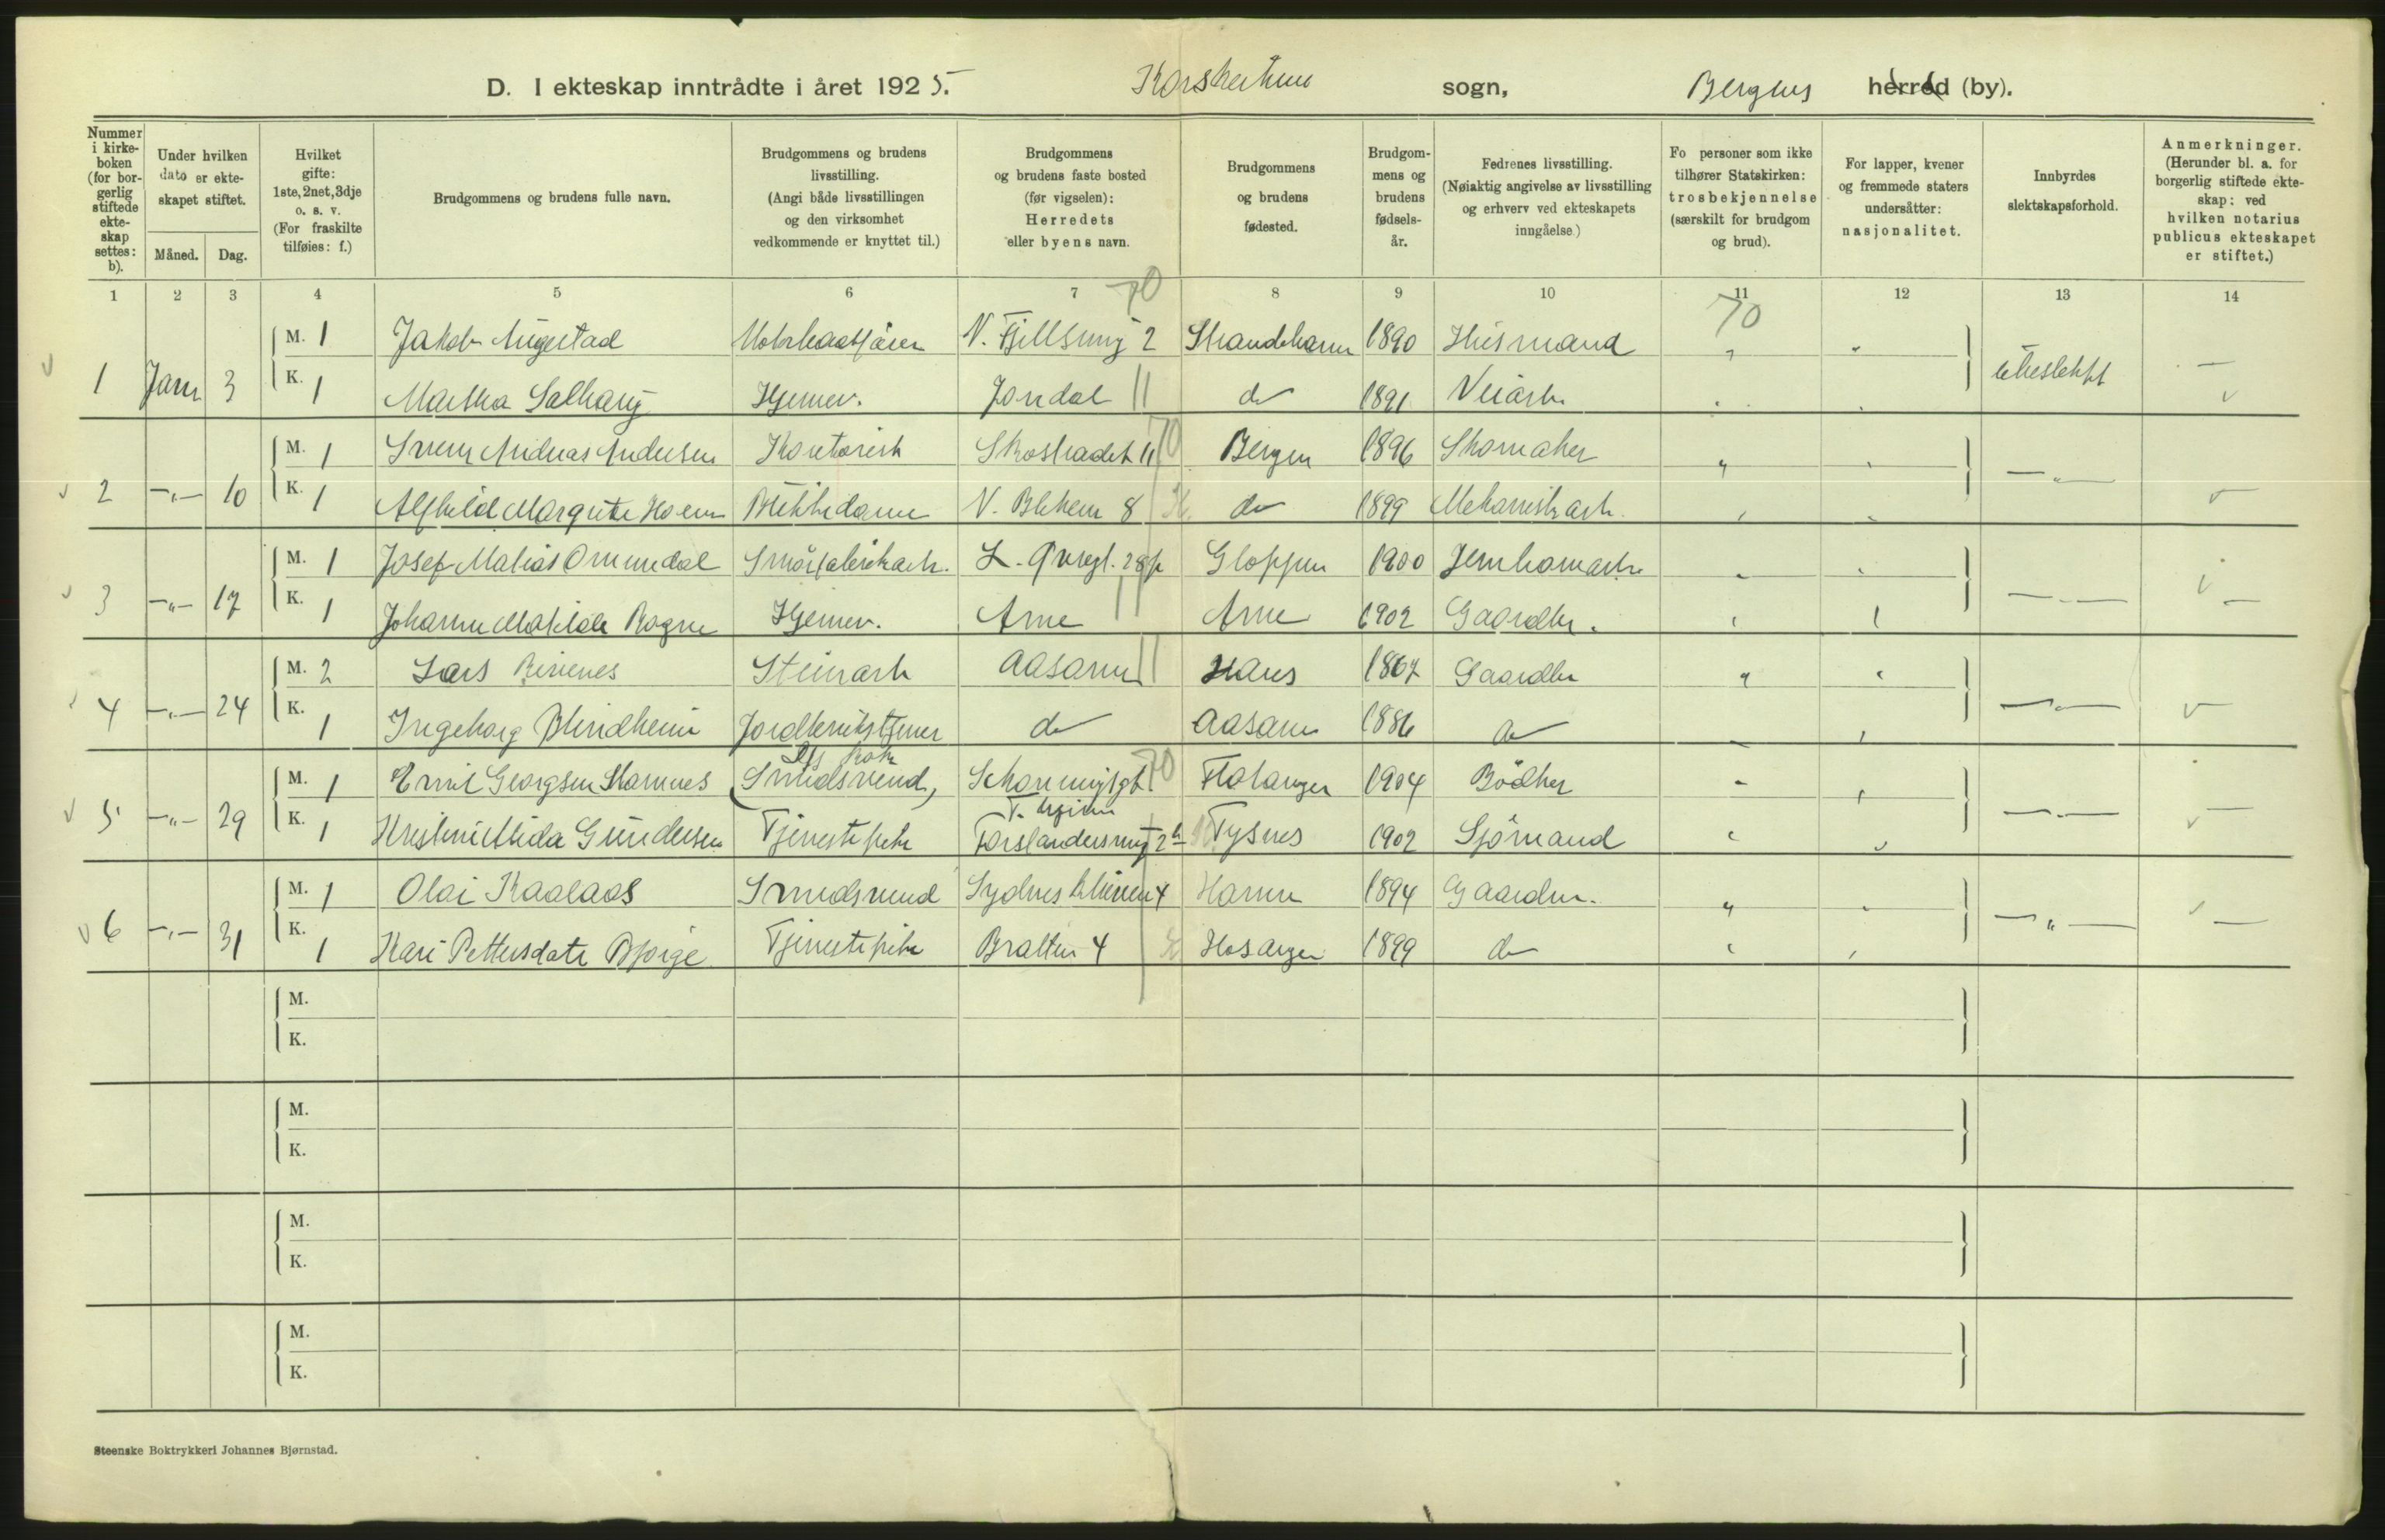 D. I ekteskap inntrådte i året 1925. Korskirkens sogn, Bergens herred (by).
Nummer i kirkeboken (for borgerlig stiftede ekteskap settes: b).
Under hvilken dato er ekteskapet stiftet.
Måned. Dag.
Hvilket gifte: 1ste, 2net, 3dje o. s. v. (For fraskilte tilføies: f.)
Brudgommens og brudens fulle navn.
Brudgommens og brudens livsstilling. (Angi både livsstillingen og den virksomhet vedkommende er knyttet til.)
Brudgommens og brudens faste bosted (før vigselen): Herredets eller byens navn.
Brudgommens og brudens fødested.
Brudgommens og brudens fødselsår.
Fedrenes livsstilling. (Nøiaktig angivelse av livsstilling og erhverv ved ekteskapets inngåelse.)
Fo personer som ikke tilhører Statskirken: trosbekjennelse (særskilt for brudgom og brud).
For lapper, kvener og fremmede staters undersåtter: nasjonalitet.
Innbyrdes slektskapsforhold.
Anmerkninger. (Herunder bl. a. for borgerlig stiftede ekteskap: ved hvilken notarius publicus ekteskapet er stiftet.)
1 2 3 4 5 6 7 8 9 10 11 12 13 14
70 70
M. 1 Jakob Augestad N. Fjellsmug 2 Strandebarm 1890 Husmand " "
1 Jan 3 K. 1 Martha Salhaug Hjemmev. Jondal 11 do 1891 Veiarb. ikkeslektet —
M. 1 Sverre Andreas Andersen Kontorist Skostrædet 11 70 Bergen 1896 Skomaker " "
2 —"— 10 K. 1 Alfhild Margrete Butikkdame N. Blekevn 8 do 1899 Mekanikarb. —"—
M. 1 Josef Matias Ommedal 28 Gloppen 1900 " "
3 —"— 17 K. 1 Johanne Matilde Hjemmev. Arne 11 Arne 1902 Gaardbr. —"— —
M. 2 Lars Stenarb Aasane 11 Haus 1867 Gaardbr " "
4 —"— 24 K. 1 Ingeborg Blindheim do Aasane 1886 do —"—
M. 1 Emil Georgsen Hamnes (Smedsvend) 70 Flatanger 1904 Bødker " "
5 —"— 29 K. 1 Alida Gundersen Tjenestepike Tysnes 1902 Sjömand —"— —
M. 1 Olai Kaalaas Smedsvend Sydnes 4 Hamre 1894 Gaardbr. " "
6 —"— 31 K. 1 Kari Pettersdatr Bjørge Tjenestepike Bratten 4 Hosanger 1899 do —"— —
M.
K.
M.
K.
M.
K.
M.
K.
Steenske Boktrykkeri Johannes Bjørnstad.